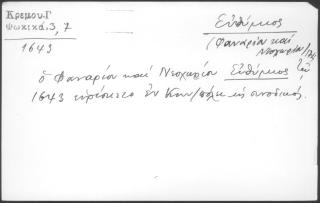 Κρεμου-Γ
Φωκικά.3, 7
1643
Εὐθύμιος
(Φαναρίου καὶ
Νεοχωρίου
ὁ Φαναρίου καὶ Νεοχωρίου Εὐθύμιος τῷ
1643 εὑρίσκετο ἐν Κων/πόλει ὡς συνοδικός.